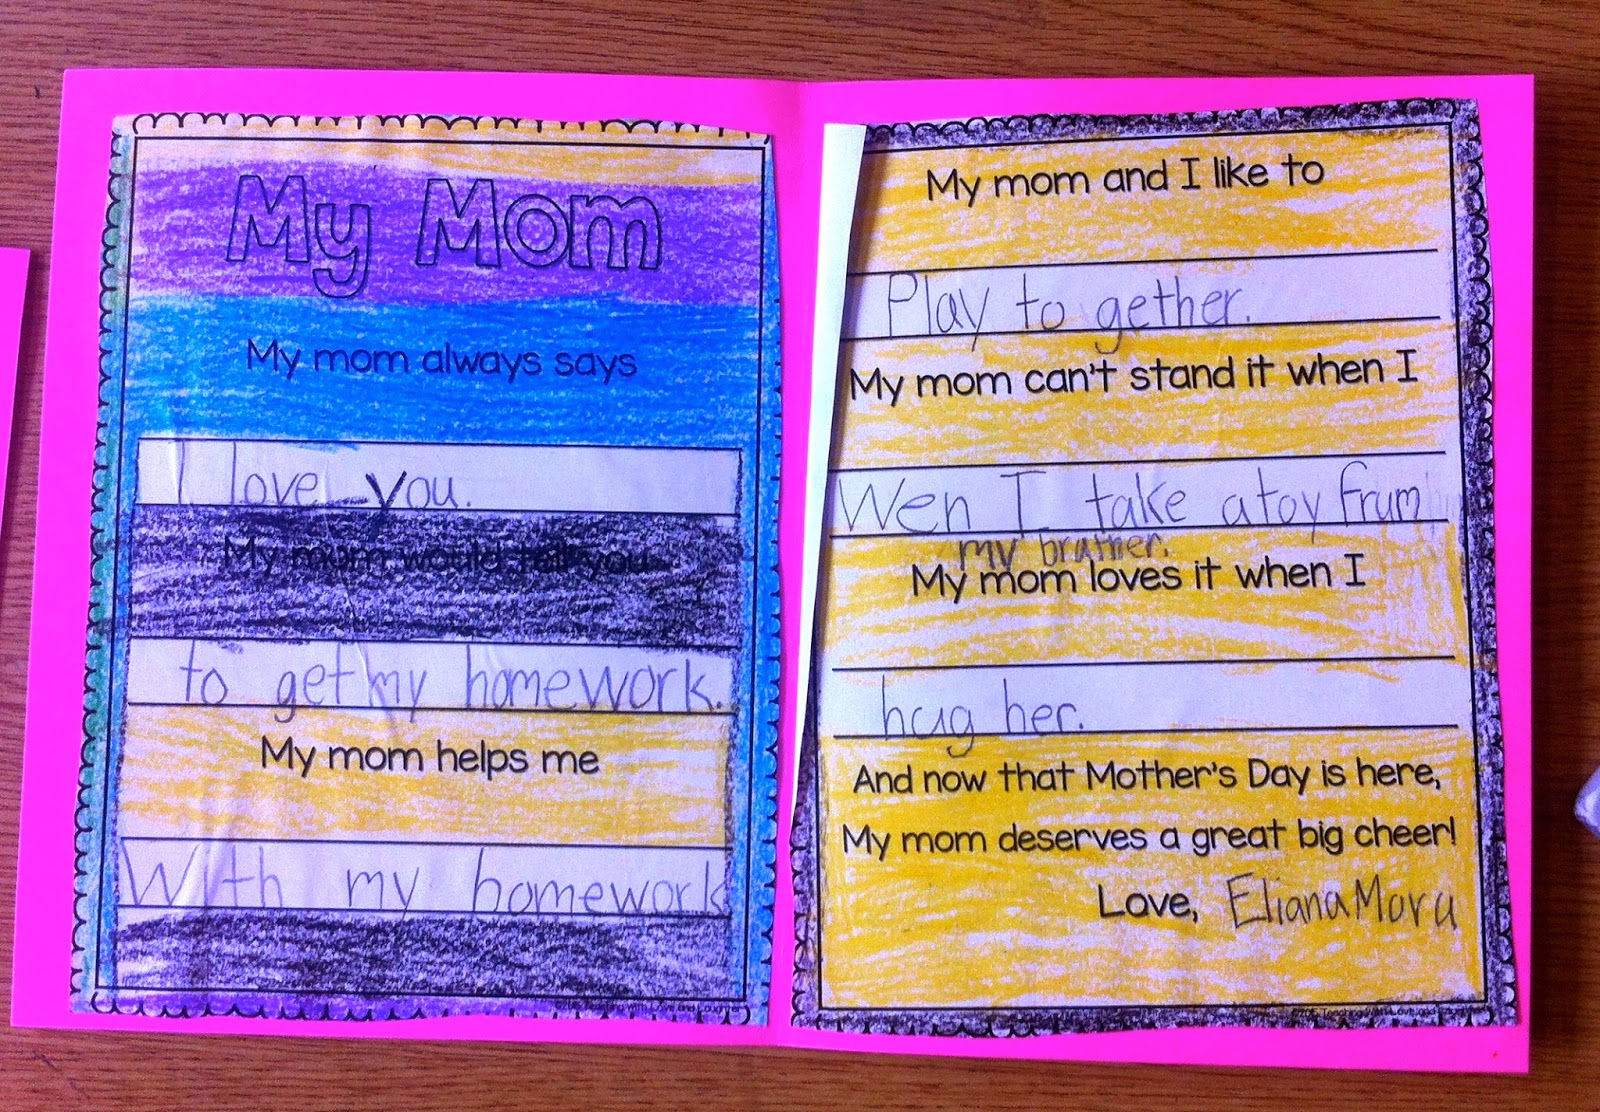 My Mom
My mom always says
I love you.
My mom would tell you
to get my homework.
My mom helps me
With my homework
My mom and I like to
Play to gether.
My mom can't stand it when I
Wen I take a toy frum
my brather.
My mom loves it when I
hug her.
And now that Mother's Day is here,
My mom deserves a great big cheer!
Love, Eliana Mora